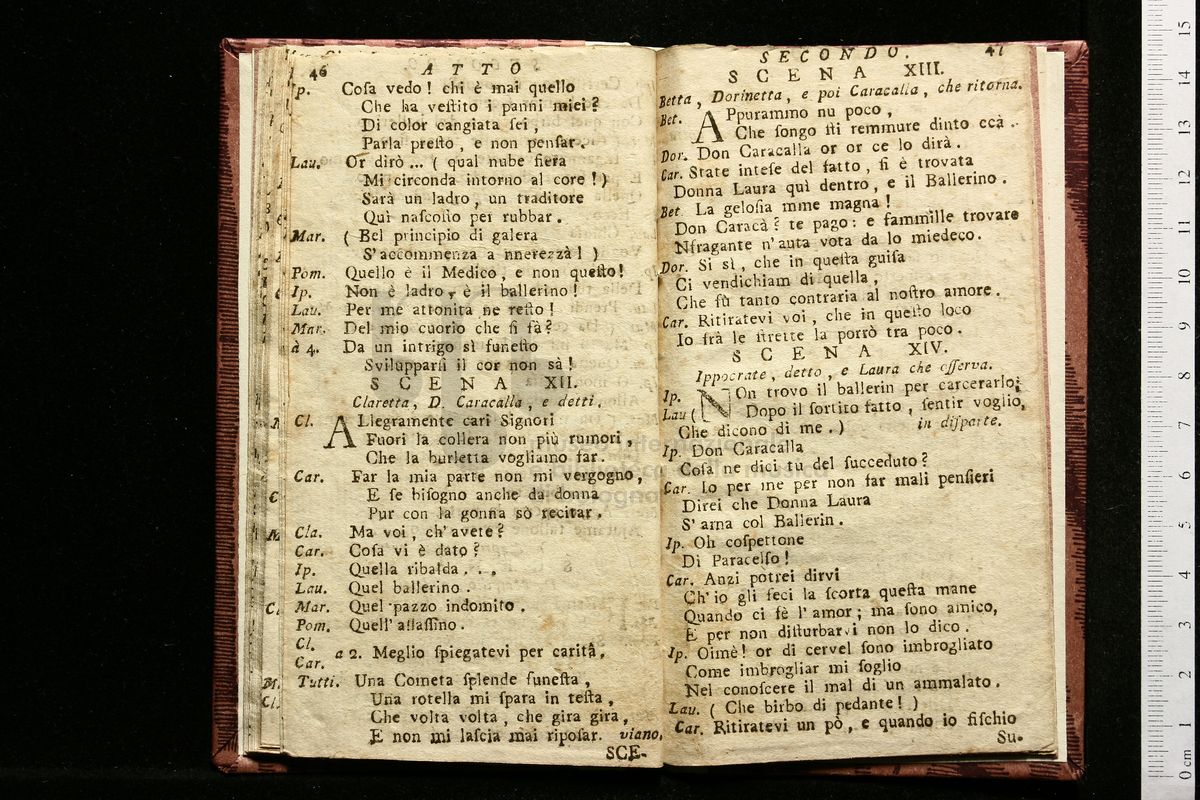 46 ATTO
Ip. Coſa vedo! chi è mai quello
Che ha veſtito i panni miei?
Di color cangiata ſei,
Parla preſto, e non penſar.
Lau. Or dirò ... ( qual nube fiera
Mi circonda intorno al core!)
Sarà un ladro, un traditore
Quì naſcoſto per rubbar.
Mar. ( Bel principio di galera
S'accommenza a nnerezzà! )
Pom. Quello è il Medico, e non queſto!
Ip. Non è ladro, è il ballerino!
Lau. Per me attonita ne reſto!
Mar. Del mio cuorio che ſi fà?
à 4. Da un intrigo sì funeſto
Svilupparſi il cor non sà!
SCENA XII.
Claretta, D. Caracalla, e detti.
Cl. ALlegramente cari Signori
Fuori la collera non più rumori,
Che la burletta vogliamo far.
Car. Far la mia parte non mi vergogno,
E ſe biſogno anche da donna
Pur con la gonna sò recitar.
Cla. Ma voi, ch'avete?
Car. Coſa vi è dato?
Ip. Quella ribalda...
Lau. Quel ballerino.
Mar. Quel pazzo indomito.
Pom. Quell'aſſaſſino.
Cl.
Car. a 2. Meglio ſpiegatevi per carità.
Tutti. Una Cometa ſplende funeſta,
Una rotella mi ſpara in teſta,
Che volta volta, che gira gira,
E non mi laſcia mai ripoſar. viano.
SCE-
SECONDO. 47
SCENA XIII.
Betta, Dorinetta, e poi Caracalla, che ritorna.
Bet. APpurammo nu poco,
Che ſongo ſti remmure dinto ccà.
Dor. Don Caracalla or or ce lo dirà.
Car. State inteſe del fatto, ſi è trovata
Donna Laura quì dentro, e il Ballerino.
Bet. La geloſia mme magna!
Don Caracà? te pago: e fammille trovare
Nfragante n'auta vota da lo miedeco.
Dor. Si sì, che in queſta guiſa
Ci vendichiam di quella,
Che fù tanto contraria al noſtro amore.
Car. Ritiratevi voi, che in queſto loco
Io frà le ſtrette la porrò tra poco.
SCENA XIV.
Ippocrate, detto, e Laura che oſſerva.
Ip. NOn trovo il ballerin per carcerarlo;
Lau ( Dopo il ſortito fatto, ſentir voglio,
Che dicono di me.) in diſparte.
Ip. Don Caracalla
Coſa ne dici tu del ſucceduto?
Car. Io per me per non far mali penſieri
Direi che Donna Laura
S'ama col Ballerin.
Ip. Oh coſpettone
Di Paracelſo!
Car. Anzi potrei dirvi
Ch'io gli feci la ſcorta queſta mane
Quando ci fè l'amor; ma ſono amico,
E per non diſturbarvi non lo dico.
Ip. Oimè! or di cervel ſono imbrogliato
Come imbrogliar mi ſoglio
Nel conoſcere il mal di un ammalato.
Lau. ( Che birbo di pedante! )
Car. Ritiratevi un pò, e quando io fiſchio
Su-
0 cm 1 2 3 4 5 6 7 8 9 10 11 12 13 14 15